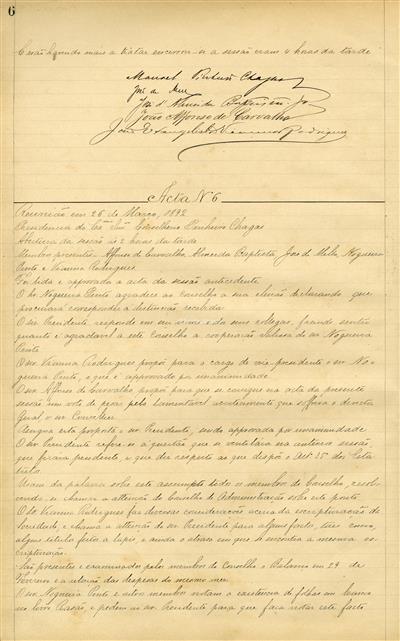 6
E não havendo mais a tratar encerrou-se a sessão eram 4 horas da tarde
Manoel Pinheiro Chagas
José de Mello
José d'Almeida Baptista Jr
João Affonso de Carvalho
João Evangelista Vianna Rodrigues
Acta Nº 6
Reunião em 26 de Março, 1892
Presidencia do Exmo Snr Conselheiro Pinheiro Chagas
Abertura da sessão ás 2 horas da tarde
Membros presentes: Affonso de Carvalho, Almeida Baptista, José de Mello, Nogueira
Pinto e Vianna Rodrigues.
Foi lida e approvada a acta da sessão antecedente
O Sr. Nogueira Pinto agradece ao Conselho a sua eleição declarando que
procurará corresponder á distincção recebida
O snr. Presidente responde em seu nome e do seus collegas, fazendo sentir
quanto é agradavel a este Conselho a cooperação valiosa do snr Nogueira
Pinto
O snr. Vianna Rodrigues propoz para o cargo de vice-presidente o snr No-
gueira Pinto, o que é approvado por unanimidade
O snr. Affonso de Carvalho propoz para que se consigne na acta da presente
sessão um voto de pezar pelo lamentavel acontecimento que soffreu o director
Geral, o snr
esta proposta o snr. Presidente, sendo approvada por unanimidade
O snr. Presidente refere-se á questão que se ventilára na anterior sessão,
que ficára pendente, e que diz respeito ao que dispõe o Artº 35 dos Esta
tutos
Usam da palavra sobre este assumpto todos os membros do Conselho, resol-
vendo-se chamar a attenção do Conselho d'Administração sobre este ponto
O Sr. Vianna Rodrigues faz diversas considerações acerca da escripturação da
Sociedade e chama a attenção do snr Presidente para alguns factos, taes como,
alguns titulos feitos a lapis, e ainda o atrazo em que se encontra a mesma es-
cripturação.
São presentes e examinados pelos membros do Conselho o Balanço em 29 de
Fevereiro e a relação das despezas do mesmo mez.
O snr. Nogueira Pinto e outros membros notam a existencia de folhas em branco
no livro Razão, e pedem ao snr. Presidente para que faça notar este facto